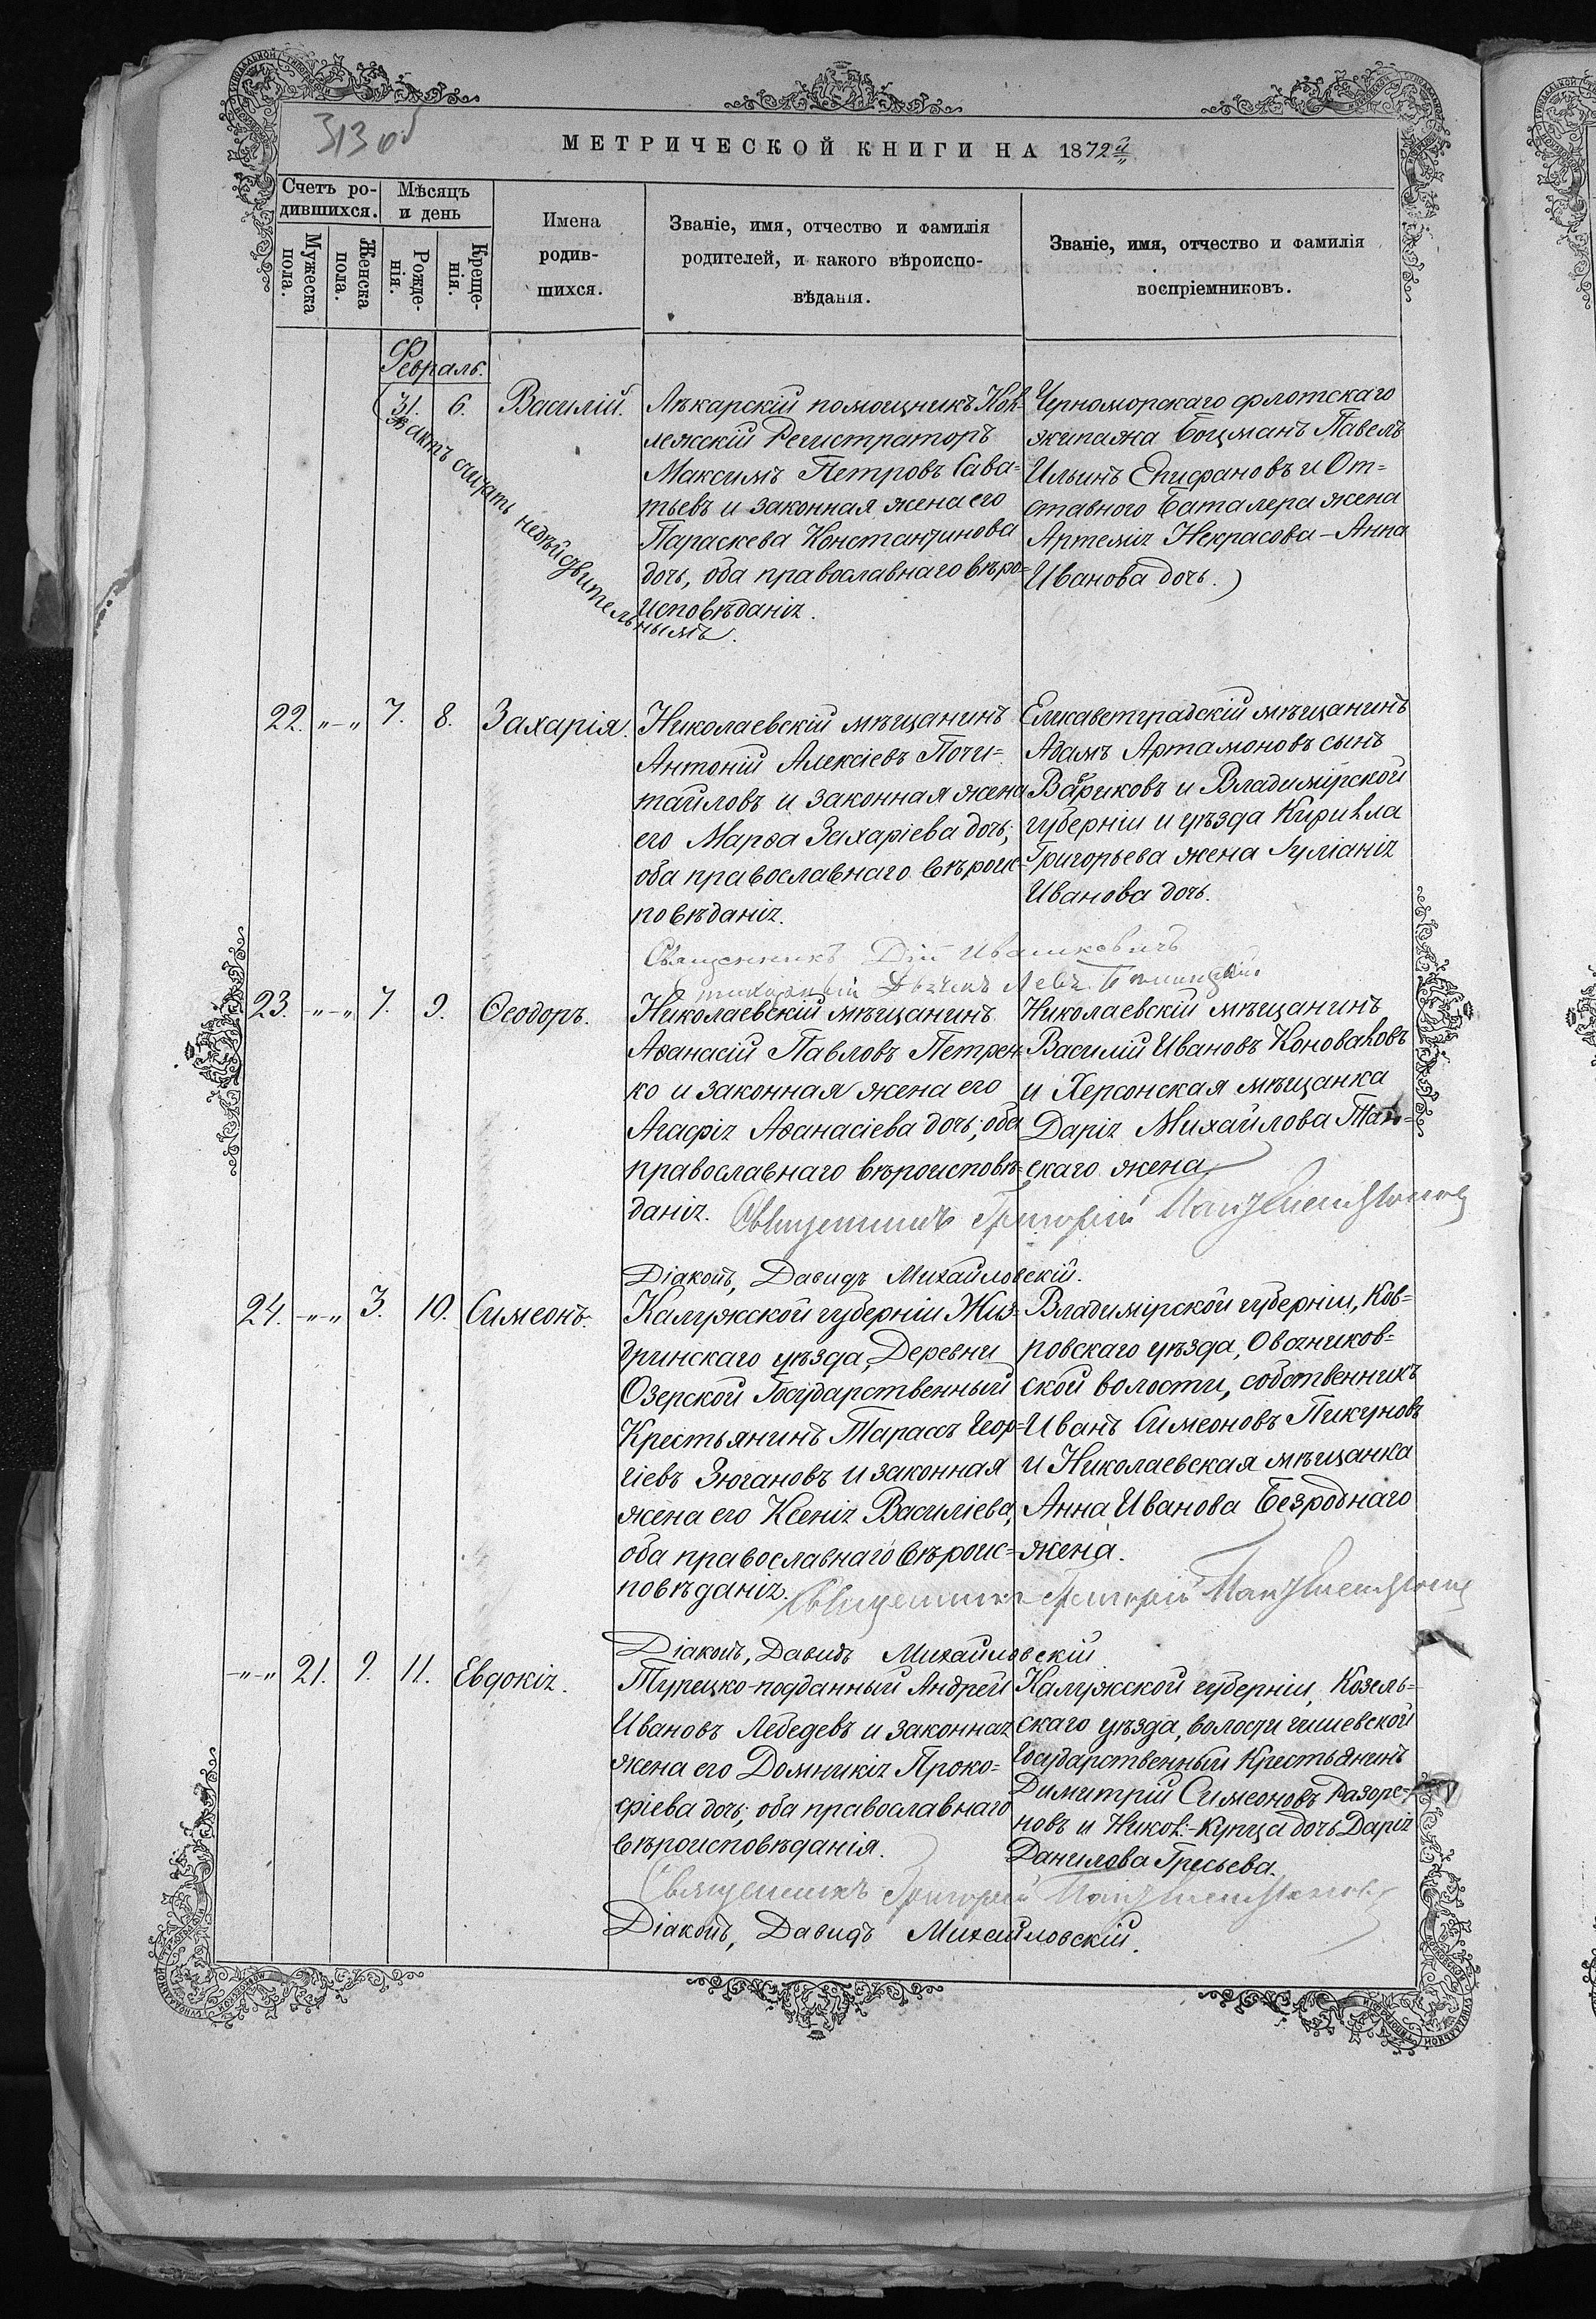 313 об
МЕТРИЧЕСКОЙ КНИГИ НА 1872й
Счетъ ро-
дившихся.
Мѣсяцъ
и день
Мужеска
пола.
Женска
пола.
Рожде-
нія.
Креще-
нія.
Имена
родив-
шихся.
Званіе, имя, отчество и фамилія
родителей, и какого вѣроиспо-
вѣданія.
Званіе, имя, отчество и фамилія
воспріемниковъ.
Февраль.
(31. 6. Василій.
актъ считать недѣйствительнымъ.
Лѣкарскій помощникъ Кол-
лежскій Регистраторъ
Максимъ Петровъ Сава=
тьевъ и законная жена его
Параскева Константинова
дочь, оба православнаго вѣро-
исповѣданія.
Черноморскаго флотскаго
экипажа Боцманъ Павелъ
Ильинъ Епифановъ и От=
ставного Баталера жена
Артемія Некрасова - Анна
Иванова дочь.)
22. -"- 7. 8. Захарія.
Николаевскій мѣщанинъ
Антоній Алексіевъ Почи=
тайловъ и законная жена
его Марѳа Захаріева дочь;
оба православнаго вѣроис-
повѣданія.
Елисаветградскій мѣщанинъ
Адамъ Артамоновъ сынъ
и Владимірской
губерніи и уѣзда Кирилла
Григорьева жена Іуліанія
Иванова дочь.
Священникъ Дій Ивашкевичъ
23. -"- 7. 9. Ѳеодоръ.
Николаевскій мѣщанинъ
Аѳанасій Павловъ Петрен-
ко и законная жена его
Агафія Аѳанасіева дочь, оба
православнаго вѣроисповѣ-
данія.
Николаевскій мѣщанинъ
Василій Ивановъ Коноваловъ
и Херсонская мѣщанка
Дарія Михайлова
скаго жена
Священникъ Григорій
Діаконъ, Давидъ Михайловскій.
24. -"- 3. 10. Симеонъ.
Калужской губерніи Жиз-
дринскаго уѣзда, Деревни
Озерской Государственный
Крестьянинъ Тарасъ Геор-
гіевъ Зюгановъ и законная
жена его Ксенія Василіева,
оба православнаго вѣроис-
повѣданія.
Владимірской губерніи, Ков=
ровскаго уѣзда, Овсчников=
ской волости, собственникъ
Иванъ Симеоновъ Пикуновъ
и Николаевская мѣщанка
Анна Иванова Безроднаго
жена.
Священникъ Григорій
Діаконъ, Давидъ Михайловскій
-"- 21. 9. 11. Евдокія.
Турецко-подданный Андрей
Ивановъ Лебедевъ и законная
жена его Домникія Проко=
фіева дочь; оба православнаго
вѣроисповѣданія.
Калужской губерніи, Козель=
скаго уѣзда, волости
Государственный Крестьянинъ
Димитрій Симеоновъ Разоре-
новъ и Никол:-Купца дочь Дарія
Данилова Гресьева.
Священникъ Григорій
Діаконъ, Давидъ Михайловскій.